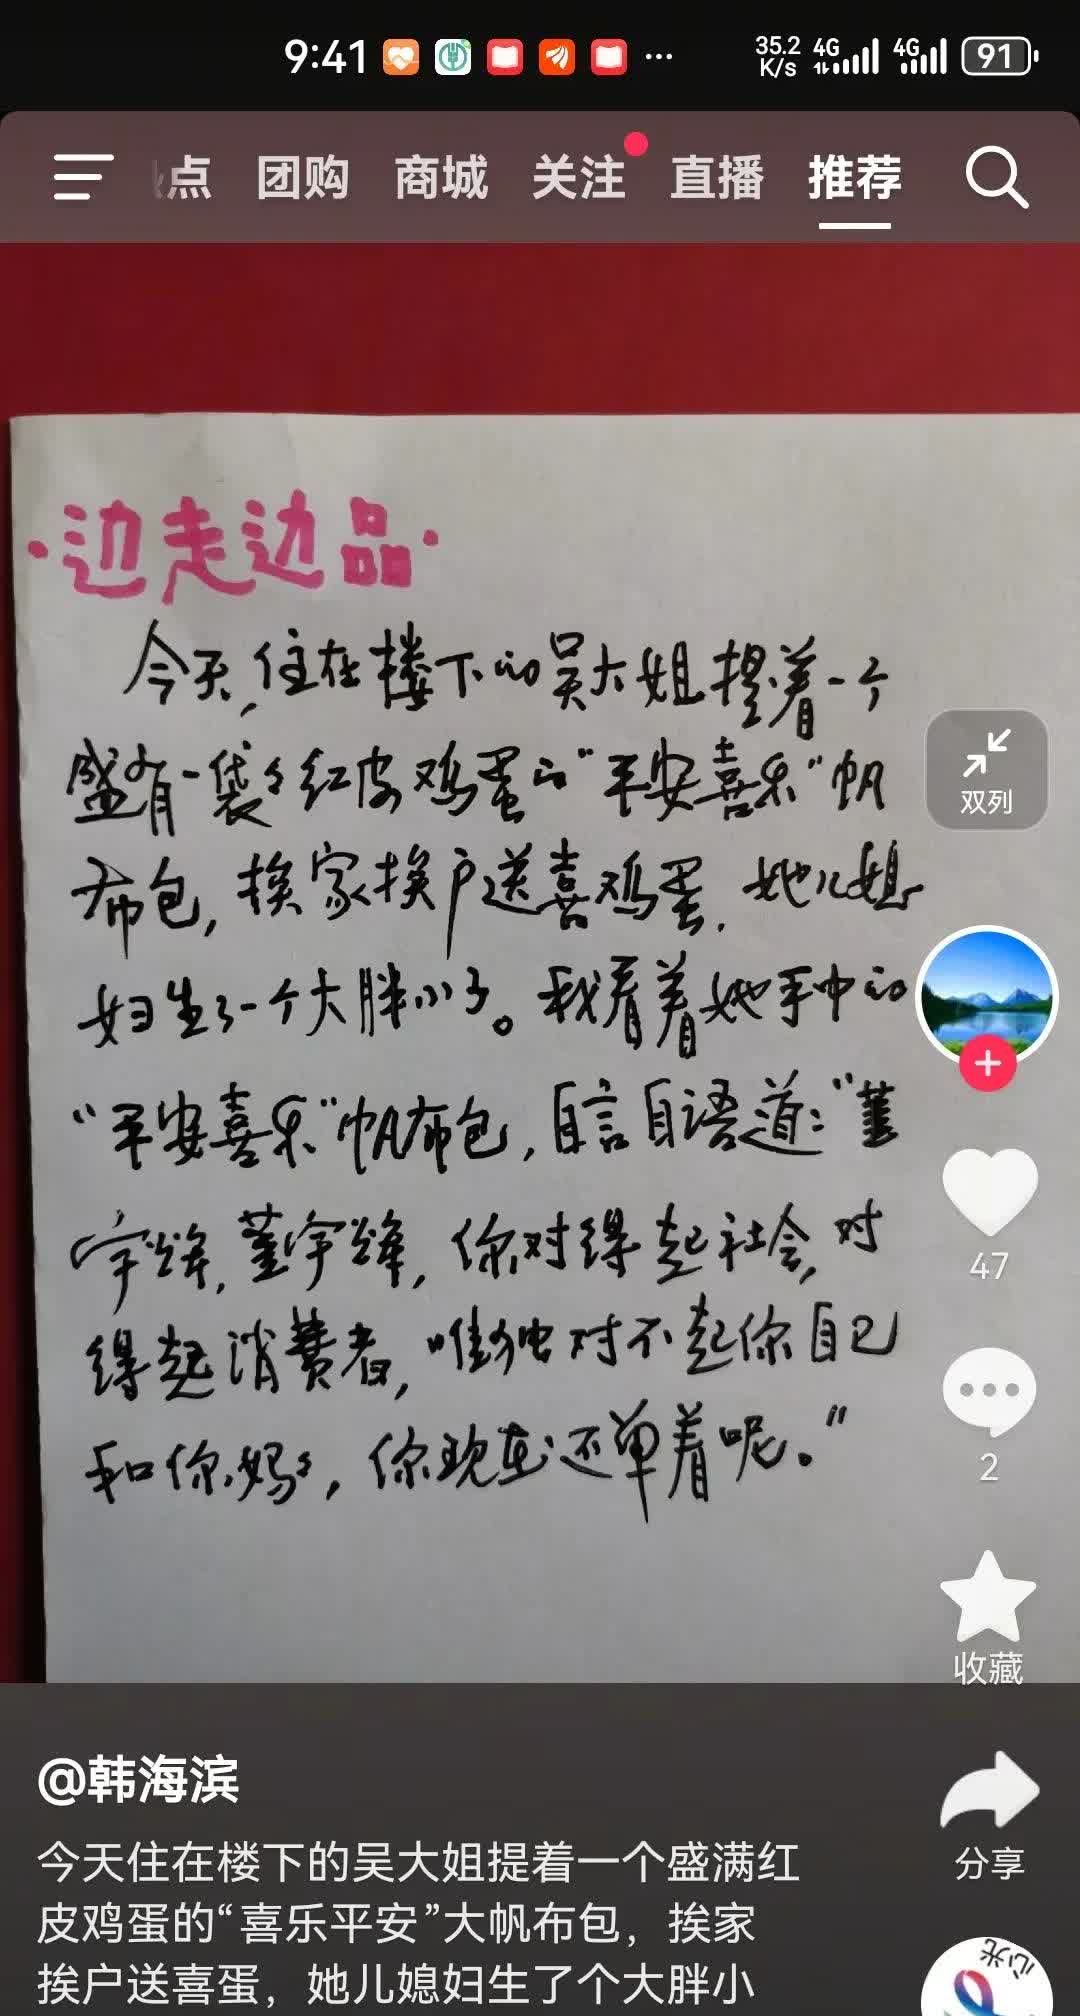 9:41
35.2 K/s 4G 4G 91
点 团购 商城 关注 直播 推荐
·边走边品·
今天,住在楼下的吴大姐提着一个
盛有一袋袋红皮鸡蛋的“平安喜乐”帆
布包,挨家挨户送喜鸡蛋,她儿媳
妇生了一个大胖小子。我看着她手中的
“平安喜乐”帆布包,自言自语道:“董
宇辉,董宇辉,你对得起社会,对
得起消费者,唯独对不起你自己
和你妈妈,你现在还单着呢。”
双列
47
2
收藏
分享
@韩海滨
今天住在楼下的吴大姐提着一个盛满红
皮鸡蛋的“喜乐平安”大帆布包，挨家
挨户送喜蛋，她儿媳妇生了个大胖小
心光